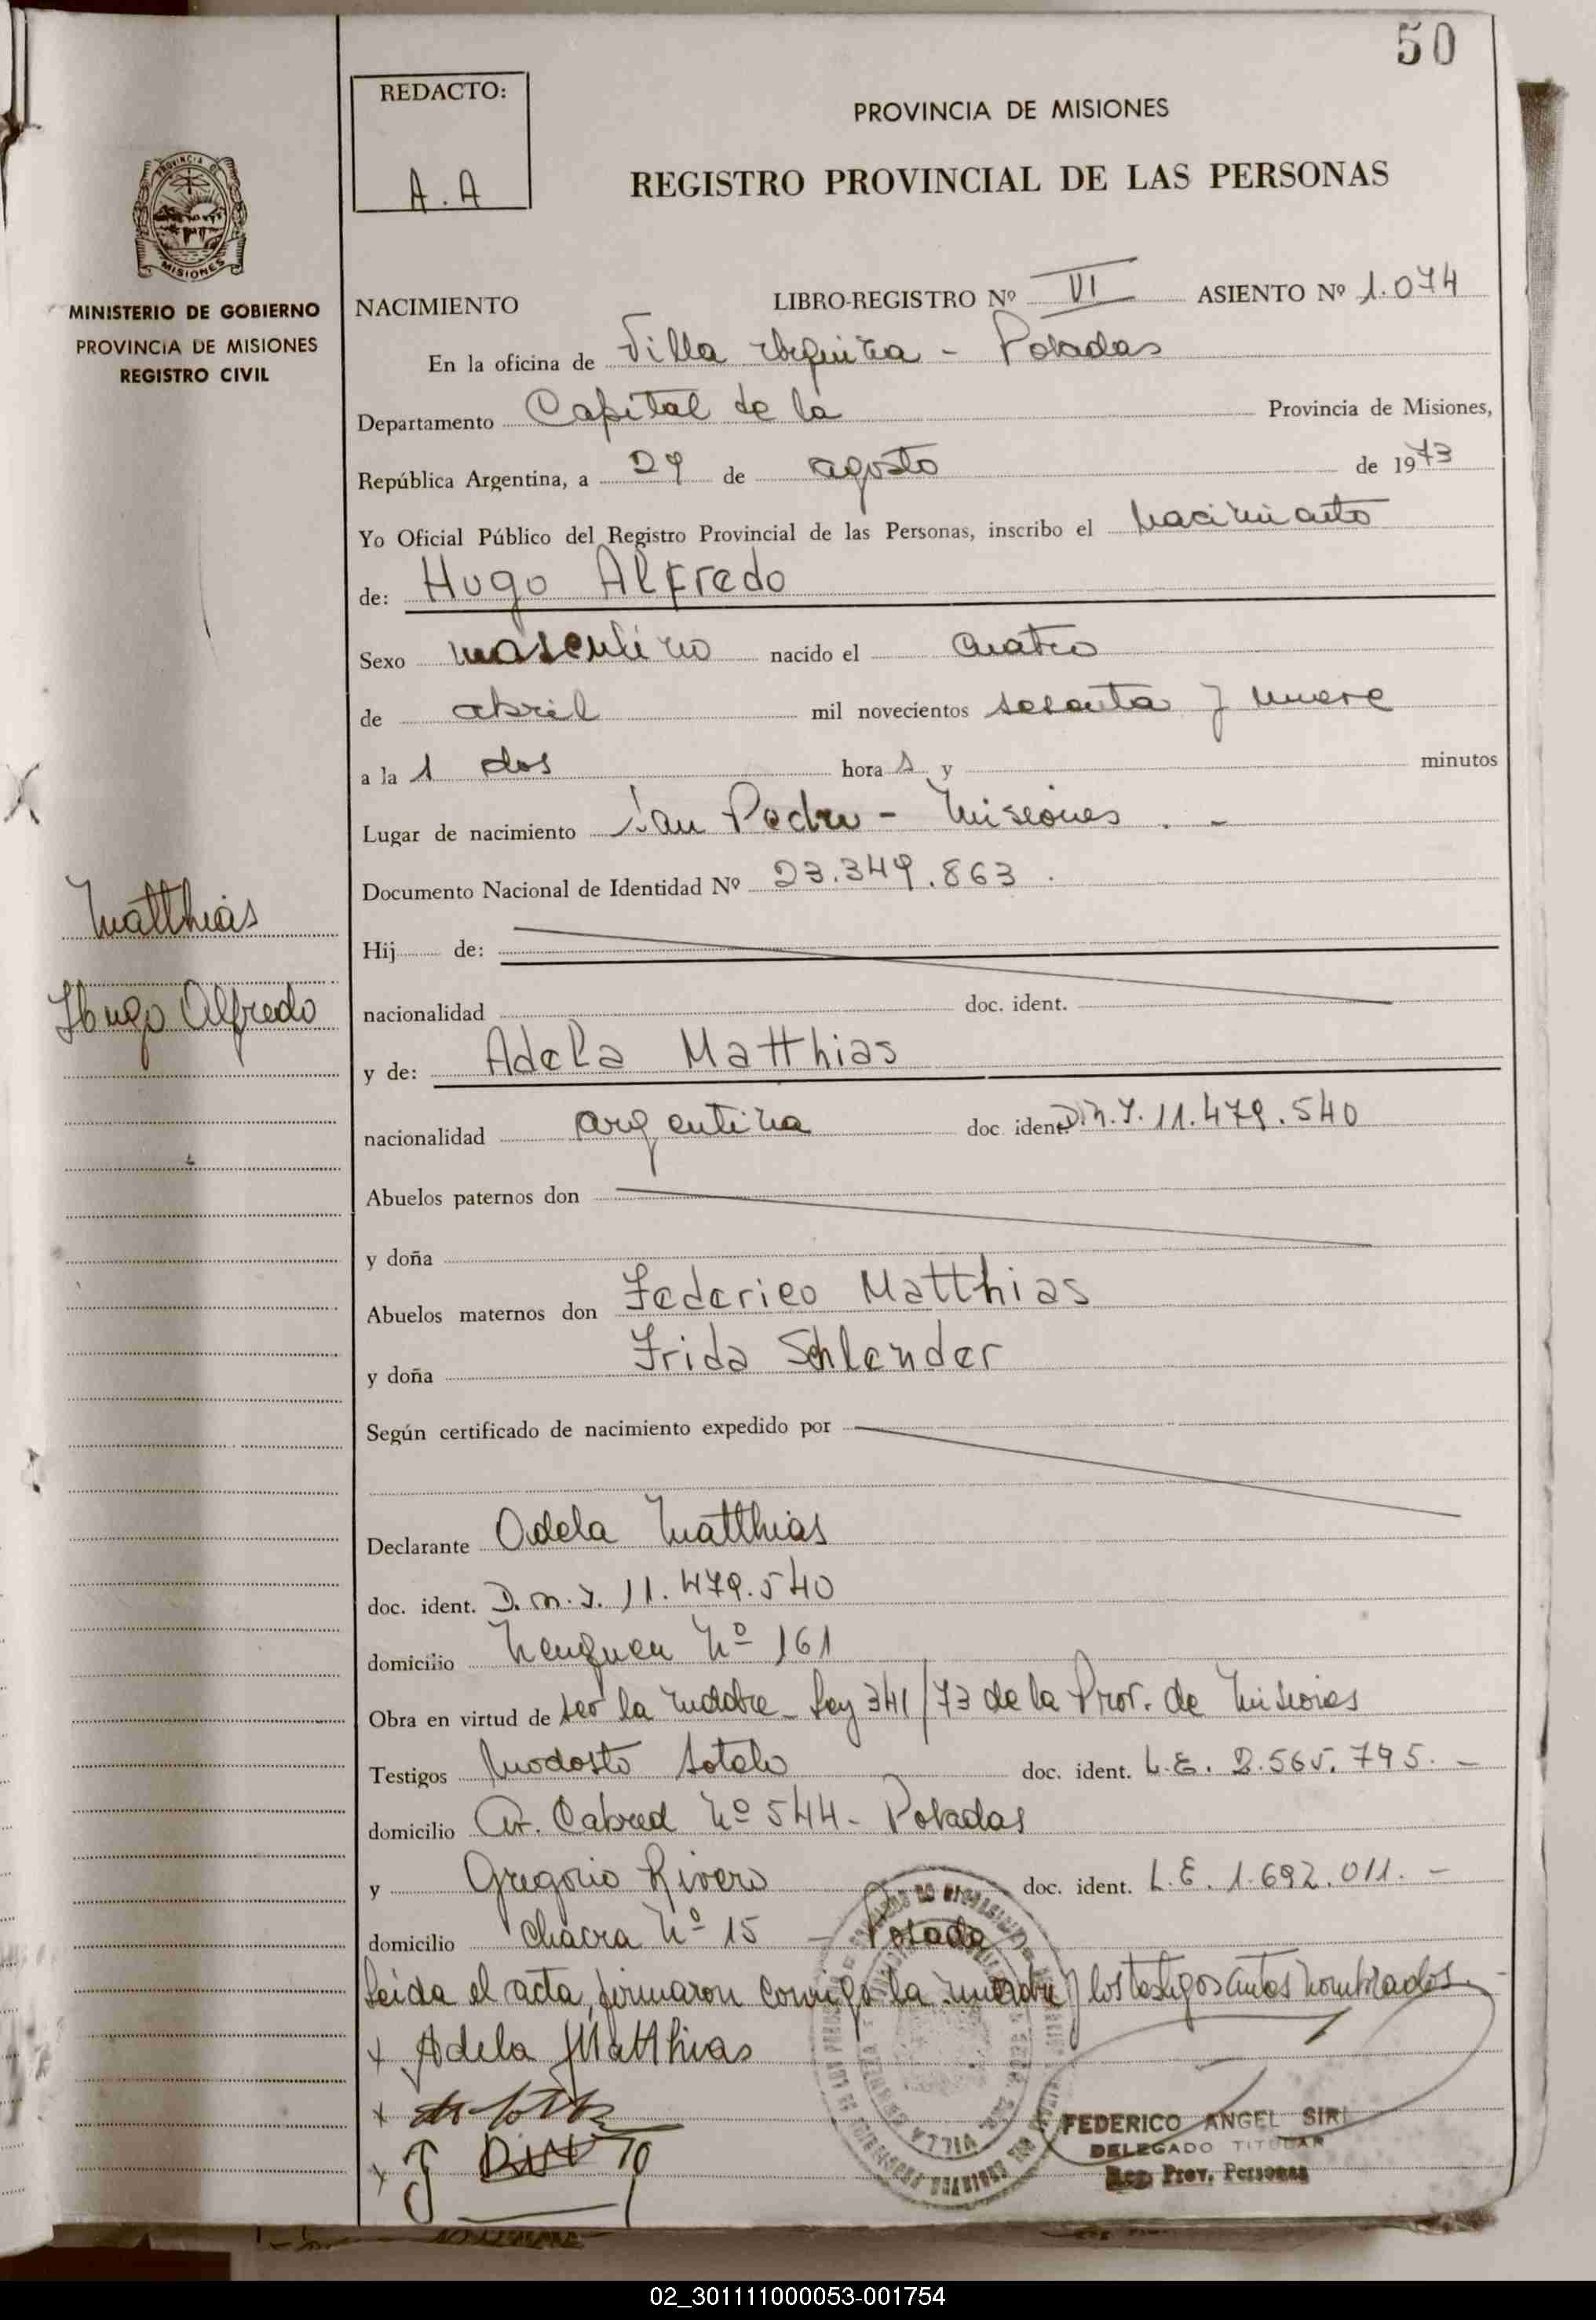 50
REDACTO:
A.A
PROVINCIA DE MISIONES
REGISTRO PROVINCIAL DE LAS PERSONAS
PROVINCIA DE
MISIONES
MINISTERIO DE GOBIERNO
PROVINCIA DE MISIONES
REGISTRO CIVIL
NACIMIENTO LIBRO-REGISTRO Nº VI ASIENTO Nº 1.074
En la oficina de Villa Urquiza - Posadas
Departamento Capital de la Provincia de Misiones,
República Argentina, a 29 de agosto de 1973
Yo Oficial Público del Registro Provincial de las Personas, inscribo el nacimiento
de: Hugo Alfredo
Sexo masculino nacido el cuatro
de abril mil novecientos sesenta y nueve
a la s dos hora s y minutos
Lugar de nacimiento San Pedro - Misiones . -
Documento Nacional de Identidad Nº 23.349.863.
Matthias
Hij de:
Hugo Alfredo
nacionalidad doc. ident.
y de: Adela Matthias
nacionalidad argentina doc. ident. D.N.I. 11.479.540
Abuelos paternos don
y doña
Abuelos maternos don Federico Matthias
y doña Frida Schlender
Según certificado de nacimiento expedido por
Declarante Adela Matthias
doc. ident. D.N.I. 11.479.540
domicilio Neuquen Nº 161
Obra en virtud de ser la madre - Ley 341/73 de la Prov. de Misiones
Testigos Modesto Sotelo doc. ident. L.E. 2.565.795. -
domicilio Av. Cabred Nº 544 - Posadas
y Gregorio Rivero doc. ident. L.E. 1.692.011. -
domicilio Chacra Nº 15 - Posadas
Leida el acta, firmaron conmigo la madre y los testigos antes nombrados. -
x Adela Matthias
x
x
FEDERICO ANGEL SIRI
DELEGADO TITULAR
Reg. Prov. Personas
02_301111000053-001754